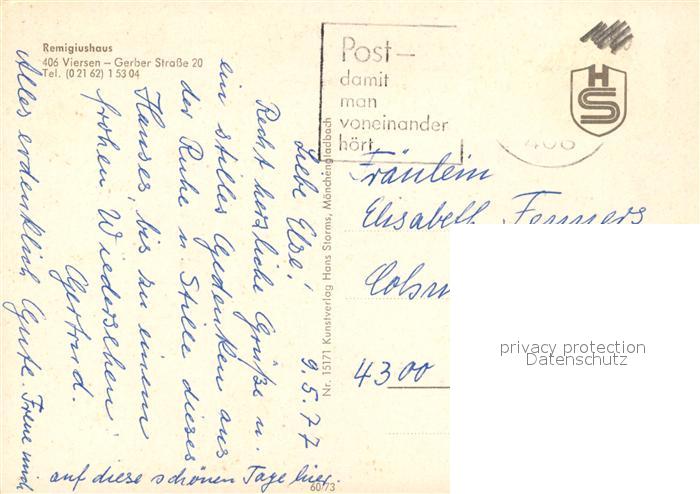 Remigiushaus
406 Viersen – Gerber Straße 20
Tel. (0 21 62) 1 53 04
Post –
damit
man
voneinander
hört
406
HS
Liebe Else! 9.5.77
Recht herzliche Grüße u.
ein stilles Gedenken aus
der Ruhe u. Stille dieses
Hauses, bis zu einem
frohen Wiedersehen
Gertrud.
Alles erdenklich Gute. Freue mich
auf diese schönen Tage hier.
Nr. 15171 Kunstverlag Hans Storms, Mönchengladbach
60/73
Fräulein
Elisabeth
4300
privacy protection
Datenschutz